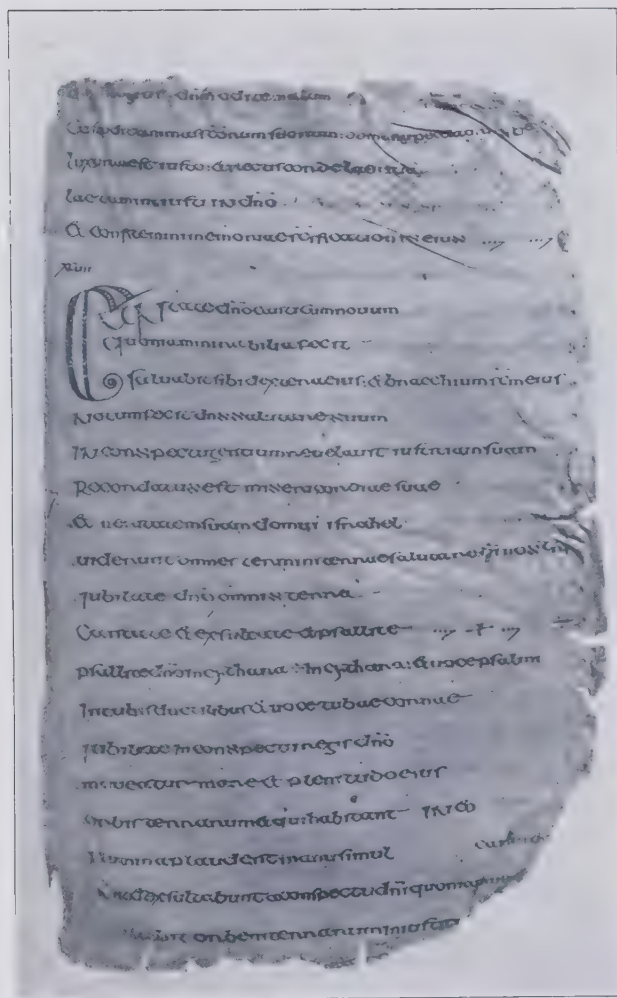 dnm odite malum
animas suorum :
lux orta est iusto : et rectis corde laetitia
laetamini iusti in dno
et confitemini memoriae scificationis eius
xcvii
Cantate dno canticum nouum
quoniam mirabilia fecit
saluabit sibi dextera eius : et brachium scm eius
Notum fecit dns salutare suum
IN conspectu gentium reuelauit iustitiam suam
Recordatus est misericordiae suae
et ueritatem suam domui israhel
uiderunt omnes termini terrae salutare
iubilate dno omnis terra
Cantate et exsultate et psallite
psallite dno in cythara : in cythara : et uoce psalmi
In tubis ductilibus et uoce tubae corneae
iubilate in conspectu regis dno
moueatur mare et plenitudo eius
orbis terrarum et qui habitant IN eo
flumina plaudent manu simul
exsultabunt a conspectu dni quoniam
orbem terrarum in iustitia